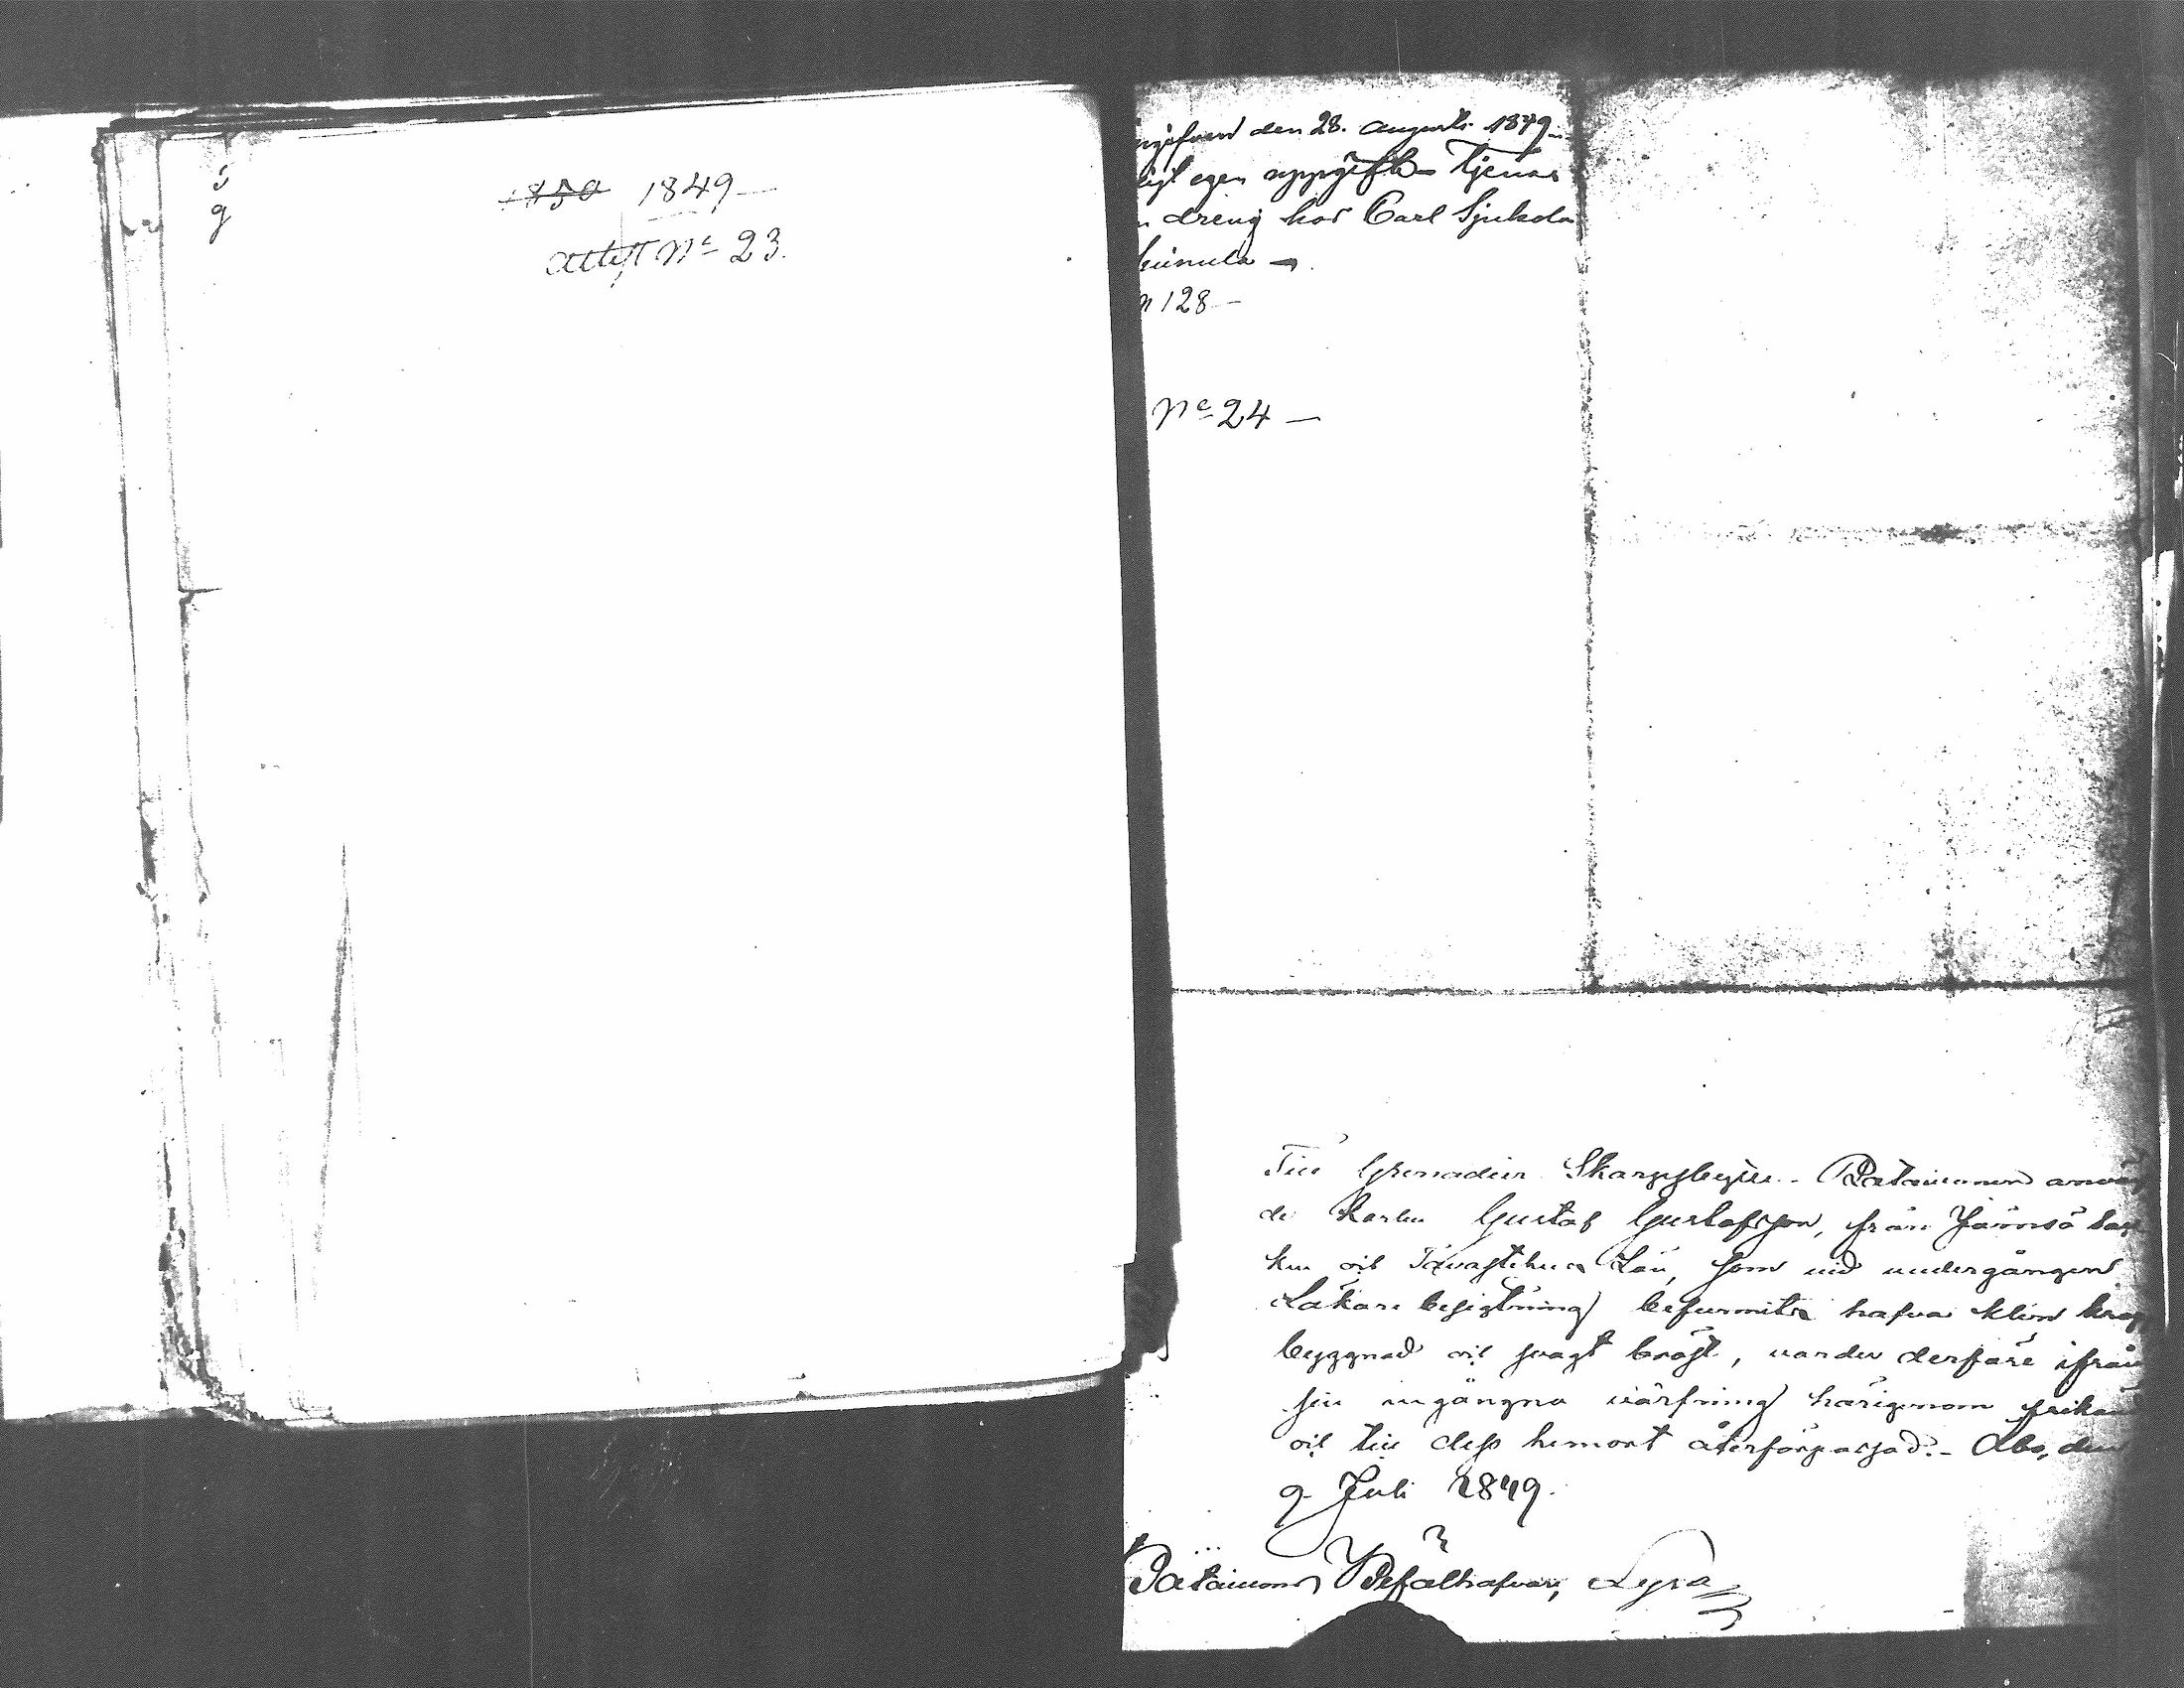 s
g
1850 1849 —
Attest No 23.
ingifven den 28. Augusti 1849 —
ligt egen uppgift — tjenar
dreng hos Carl Sjukola
n 128 —
No 24 —
Till Grenadier Skarpskytte-Bataillonen anmäl
de Karlen Gustaf Gustafsson, från Jämsö Sok
ken och Tavastehus Län, som vid undergången
Läkare besigtning befunnits hafva klen krop
byggnad och svagt bröst, varder derföre ifrån
sin ingångna värfning härigenom frikän
och till dess hemort återförpassad. - Åbo, den
9 Juli 1849.
Bataillons Befälhafvare, Lyra